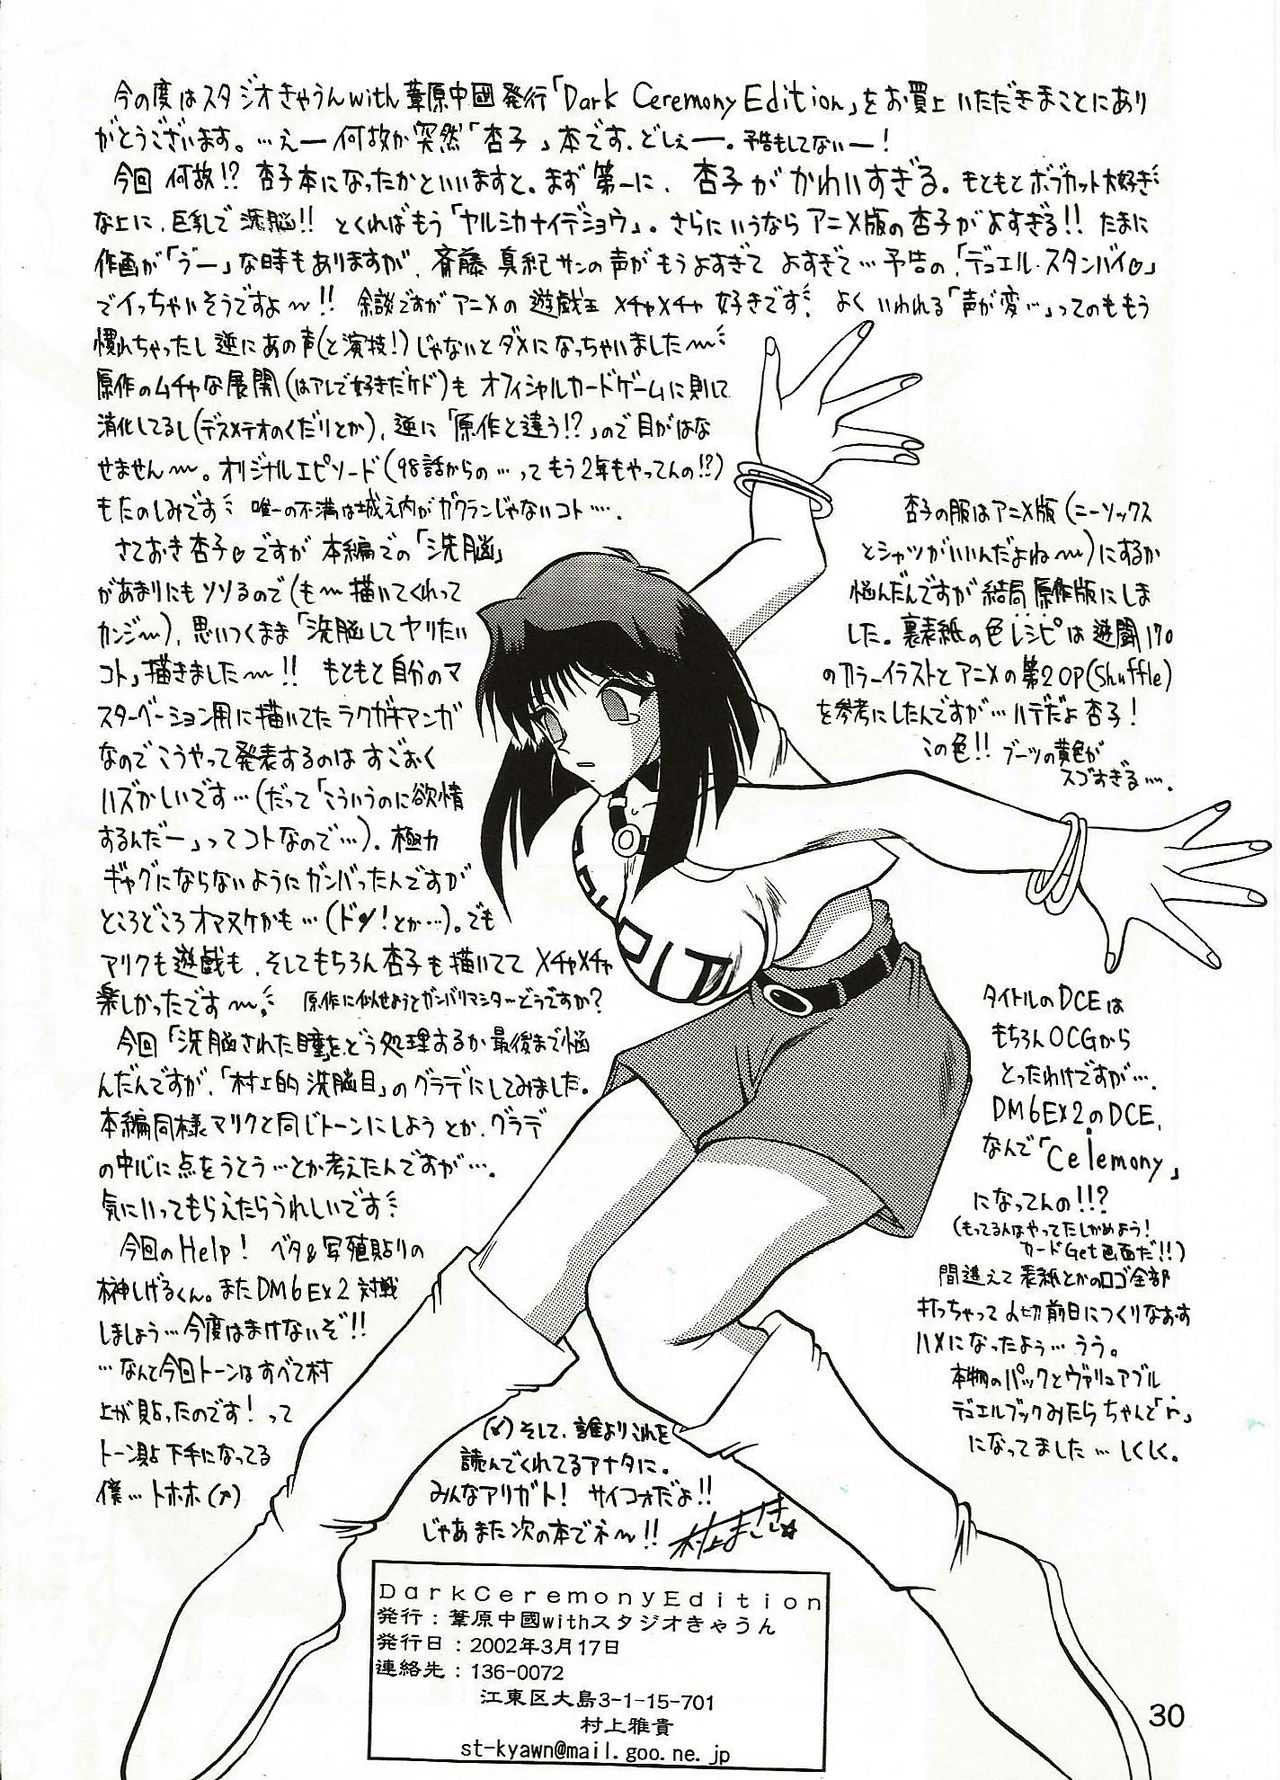 今の度はスタジオきゃうんwith葦原中國発行「Dark Ceremony Edition」をお買上いただきまことにあり
がとうございます。…えー何故か突然「杏子」本です。どしぇー。予告もしてないー!
今回何故!?杏子本になったかといいますと。まず第一に、杏子がかわいすぎる。もともとボブカット大好き
な上に、巨乳で洗脳!!とくればもう「ヤルシカナイデショウ」。さらにいうならアニメ版の杏子がよすぎる!!たまに
作画が「うー」な時もありますが、斉藤真紀サンの声がもうよすぎてよすぎて…予告の、「デュエル・スタンバイ♡」
でイっちゃいそうですよ〜!!余談ですがアニメの遊戯王メチャメチャ好きです!よくいわれる「声が変…」ってのももう
慣れちゃったし逆にあの声(と演技!)じゃないとダメになっちゃいました〜
原作のムチャな展開(はアレで好きだケド)もオフィシャルカードゲームに則して
消化してるし(デスメテオのくだりとか)、逆に「原作と違う!?」ので目がはな
せません〜。オリジナルエピソード(98話からの…ってもう2年もやってんの!?)
もたのしみです 唯一の不満は城之内がガクランじゃないコト….
さておき杏子♡ですが本編での「洗脳」
があまりにもソソるので(も〜描いてくれって
カンジ〜)、思いつくまま「洗脳してヤリたい
コト」描きました〜!!もともと自分のマ
スターベーション用に描いてたラクガキマンガ
なのでこうやって発表するのはすごおく
ハズかしいです…(だって「こういうのに欲情
するんだー」ってコトなので…)。極力
ギャグにならないようにガンバったんですが
ところどころオマヌケかも…(ドン!とか…)。でも
マリクも遊戯も、そしてもちろん杏子も描いてて メチャメチャ
楽しかったです〜。原作に似せようとガンバリマシターどうですか?
今回「洗脳された瞳」をどう処理するか最後まで悩
んだんですが、「村上的洗脳目」のグラデにしてみました。
本編同様マリクと同じトーンにしようとか、グラデ
の中心に点をうとう…とか考えたんですが….
気にいってもらえたらうれしいです
今回のHelp! ベタ&写植貼りの
榊しげるくん。またDM6Ex2対戦
しましょう…今度はまけないぞ!!
…なんと今回トーンはすべて村
上が貼ったのです!って
トーン貼下手になってる
僕…トホホ
そして、誰よりこれを
読んでくれてるアナタに。
みんなアリガト!サイコオだよ!!
じゃあまた次の本でネ〜!!
村上まさき☆
杏子の服はアニメ版(ニーソックス
とシャツがいいんだよね〜)にするか
悩んだんですが結局原作版にしま
した。裏表紙の色レシピは遊闘170
のカラーイラストとアニメの第2OP(Shuffle)
を参考にしたんですが…ハデだよ杏子!
この色!!ブーツの黄色が
スゴすぎる….
タイトルのDCEは
もちろんOCGから
とったわけですが….
DM6EX2のDCE,
なんで「Celemony」
になってんの!!?
(もってる人はやってたしかめよう!
カードGet画面だ!!)
間違えて表紙とかのロゴ全部
打っちゃって〆切前日につくりなおす
ハメになったよう…うう。
本物のパックとヴァリュアブル
デュエルブックみたらちゃんと「r」
になってました…しくしく。
DarkCeremonyEdition
発行:葦原中國withスタジオきゃうん
発行日:2002年3月17日
連絡先:136-0072
江東区大島3-1-15-701
村上雅貴
st-kyawn@mail.goo.ne.jp
30